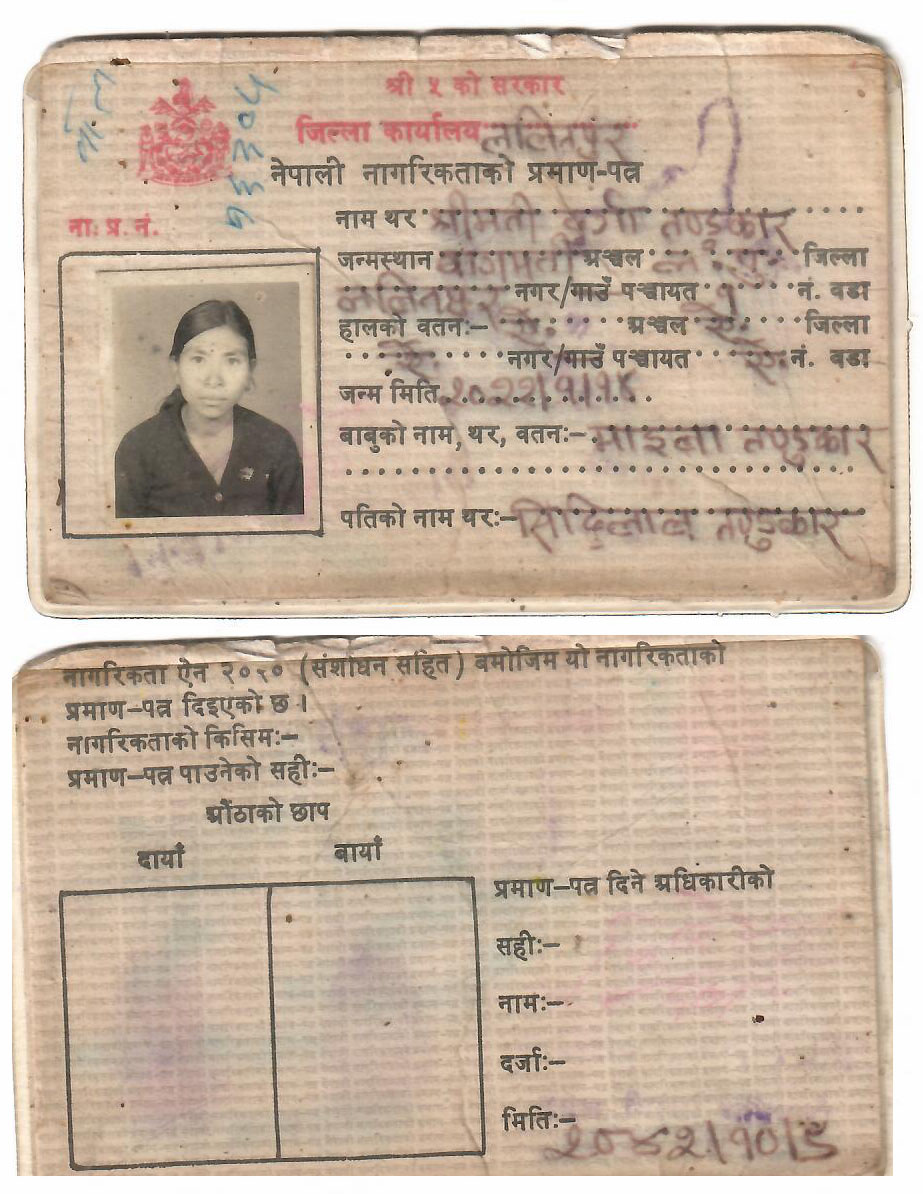 श्री ५ को सरकार
जिल्ला कार्यालय ललितपुर
नेपाली नागरिकताको प्रमाण-पत्र
ना. प्र. नं.
नाम थर श्रीमती दुर्गा तण्डुकार
जन्मस्थान बागमती अञ्चल ल. पु. जिल्ला
ललितपुर नगर/गाउँ पञ्चायत १ नं. वडा
हालको वतनः- ऐ. अञ्चल ऐ. जिल्ला
ऐ. नगर/गाउँ पञ्चायत ऐ. नं. वडा
जन्म मिति २०२२।१।१५
बाबुको नाम, थर, वतनः- माइला तण्डुकार
पतिको नाम थरः- सिद्दिलाल तण्डुकार
नागरिकता ऐन २०२० (संशोधन सहित) बमोजिम यो नागरिकताको
प्रमाण-पत्र दिइएको छ ।
नागरिकताको किसिमः-
प्रमाण-पत्र पाउनेको सहीः-
औंठाको छाप
दायाँ बायाँ
प्रमाण-पत्र दिने अधिकारीको
सहीः-
नामः-
दर्जाः-
मितिः- २०४२।१०।६